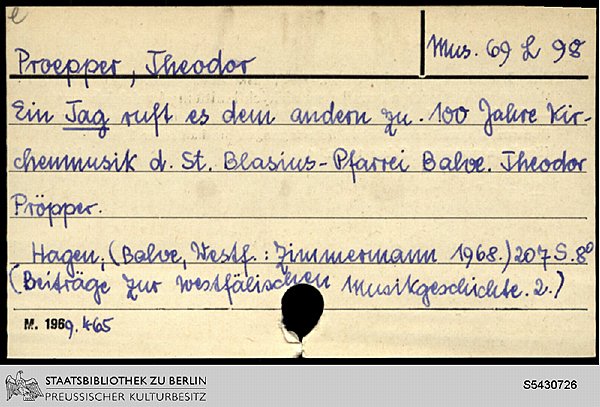 e
Proepper, Theodor
Mus. 69 L 98
Ein Tag ruft es dem andern zu. 100 Jahre Kir-
chenmusik d. St. Blasius-Pfarrei Balve. Theodor
Pröpper.
Hagen; (Balve, Westf.: Zimmermann 1968.) 207 S. 8°
(Beiträge zur westfälischen Musikgeschichte. 2.)
M. 1969. 465
STAATSBIBLIOTHEK ZU BERLIN
PREUSSISCHER KULTURBESITZ
S5430726